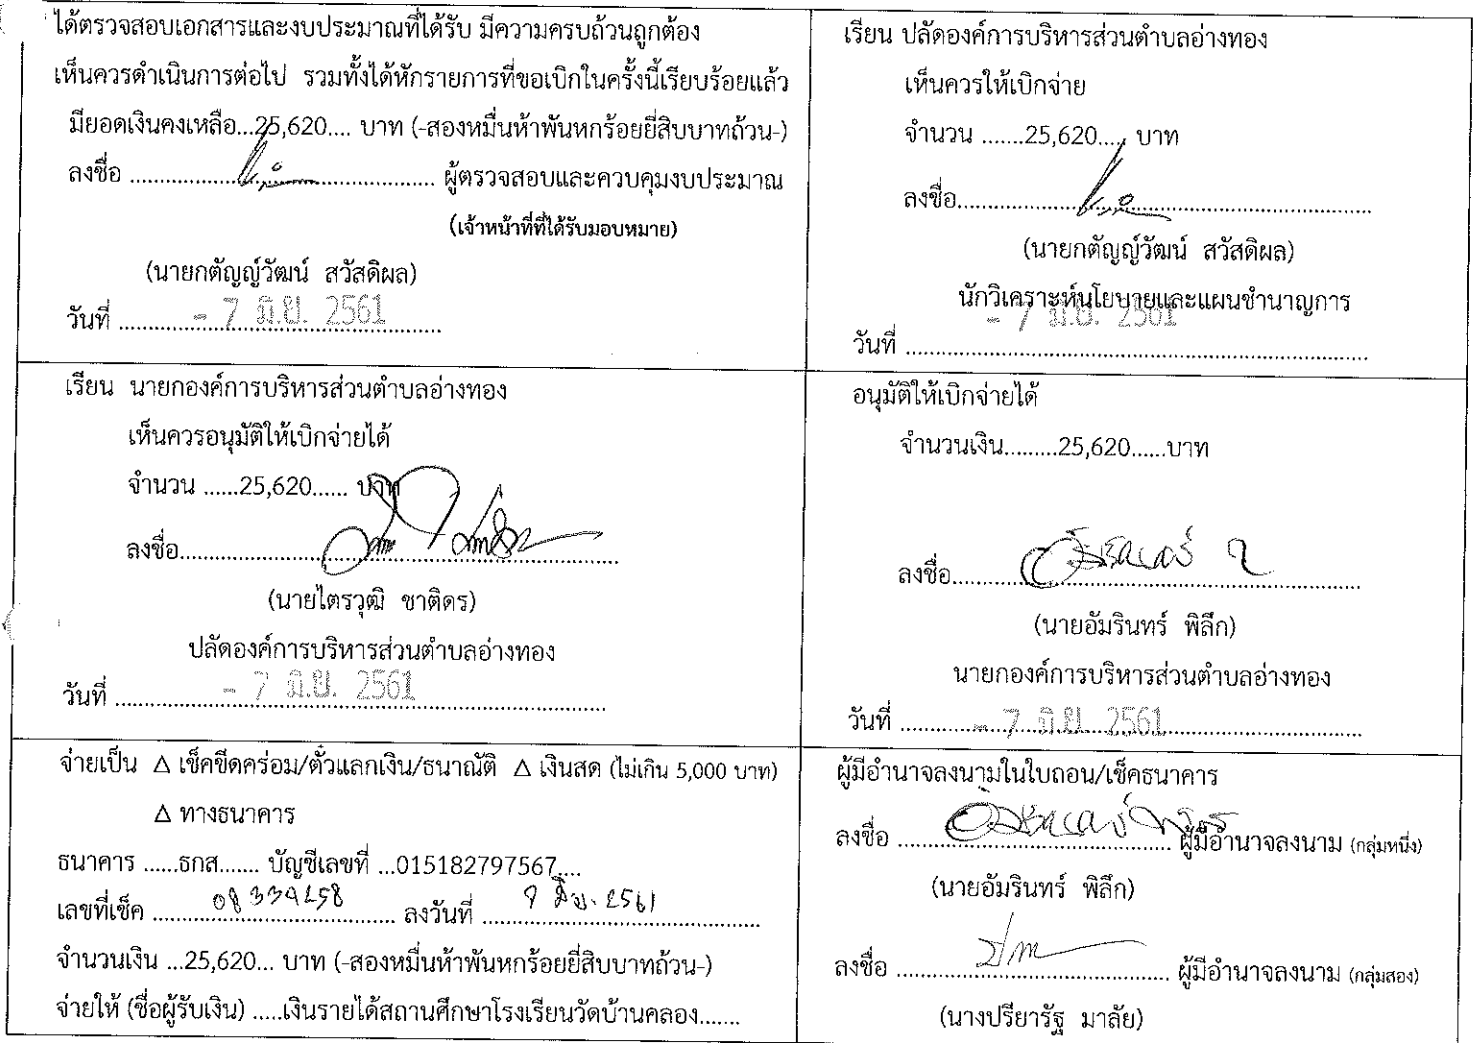 ได้ตรวจสอบเอกสารและงบประมาณที่ได้รับ มีความครบถ้วนถูกต้อง
เห็นควรดำเนินการต่อไป รวมทั้งได้หักรายการที่ขอเบิกในครั้งนี้เรียบร้อยแล้ว
มียอดเงินคงเหลือ...25,620.... บาท (-สองหมื่นห้าพันหกร้อยยี่สิบบาทถ้วน-)
ลงชื่อ .......................................... ผู้ตรวจสอบและควบคุมงบประมาณ
(เจ้าหน้าที่ที่ได้รับมอบหมาย)
(นายกตัญญ์วัฒน์ สวัสดิผล)
วันที่ - 7 มิ.ย. 2561
เรียน ปลัดองค์การบริหารส่วนตำบลอ่างทอง
เห็นควรให้เบิกจ่าย
จำนวน .......25,620.... บาท
ลงชื่อ..........................................
(นายกตัญญ์วัฒน์ สวัสดิผล)
นักวิเคราะห์นโยบายและแผนชำนาญการ
- 7 มิ.ย. 2561
วันที่ ..........................................
เรียน นายกองค์การบริหารส่วนตำบลอ่างทอง
เห็นควรอนุมัติให้เบิกจ่ายได้
จำนวน ......25,620...... บาท
ลงชื่อ..........................................
(นายไตรวุฒิ ชาติดร)
ปลัดองค์การบริหารส่วนตำบลอ่างทอง
วันที่ - 7 มิ.ย. 2561
อนุมัติให้เบิกจ่ายได้
จำนวนเงิน.........25,620......บาท
ลงชื่อ..........................................
(นายอัมรินทร์ พิลึก)
นายกองค์การบริหารส่วนตำบลอ่างทอง
วันที่ - 7 มิ.ย. 2561
จ่ายเป็น ∆ เช็คขีดคร่อม/ตั๋วแลกเงิน/ธนาณัติ ∆ เงินสด (ไม่เกิน 5,000 บาท)
∆ ทางธนาคาร
ธนาคาร ......ธกส....... บัญชีเลขที่ ...015182797567....
เลขที่เช็ค 08339258 ลงวันที่ 7 มิ.ย. 2561
จำนวนเงิน ...25,620... บาท (-สองหมื่นห้าพันหกร้อยยี่สิบบาทถ้วน-)
จ่ายให้ (ชื่อผู้รับเงิน) .....เงินรายได้สถานศึกษาโรงเรียนวัดบ้านคลอง.......
ผู้มีอำนาจลงนามในใบถอน/เช็คธนาคาร
ลงชื่อ .......................................... ผู้มีอำนาจลงนาม (กลุ่มหนึ่ง)
(นายอัมรินทร์ พิลึก)
ลงชื่อ .......................................... ผู้มีอำนาจลงนาม (กลุ่มสอง)
(นางปรียารัฐ มาลัย)